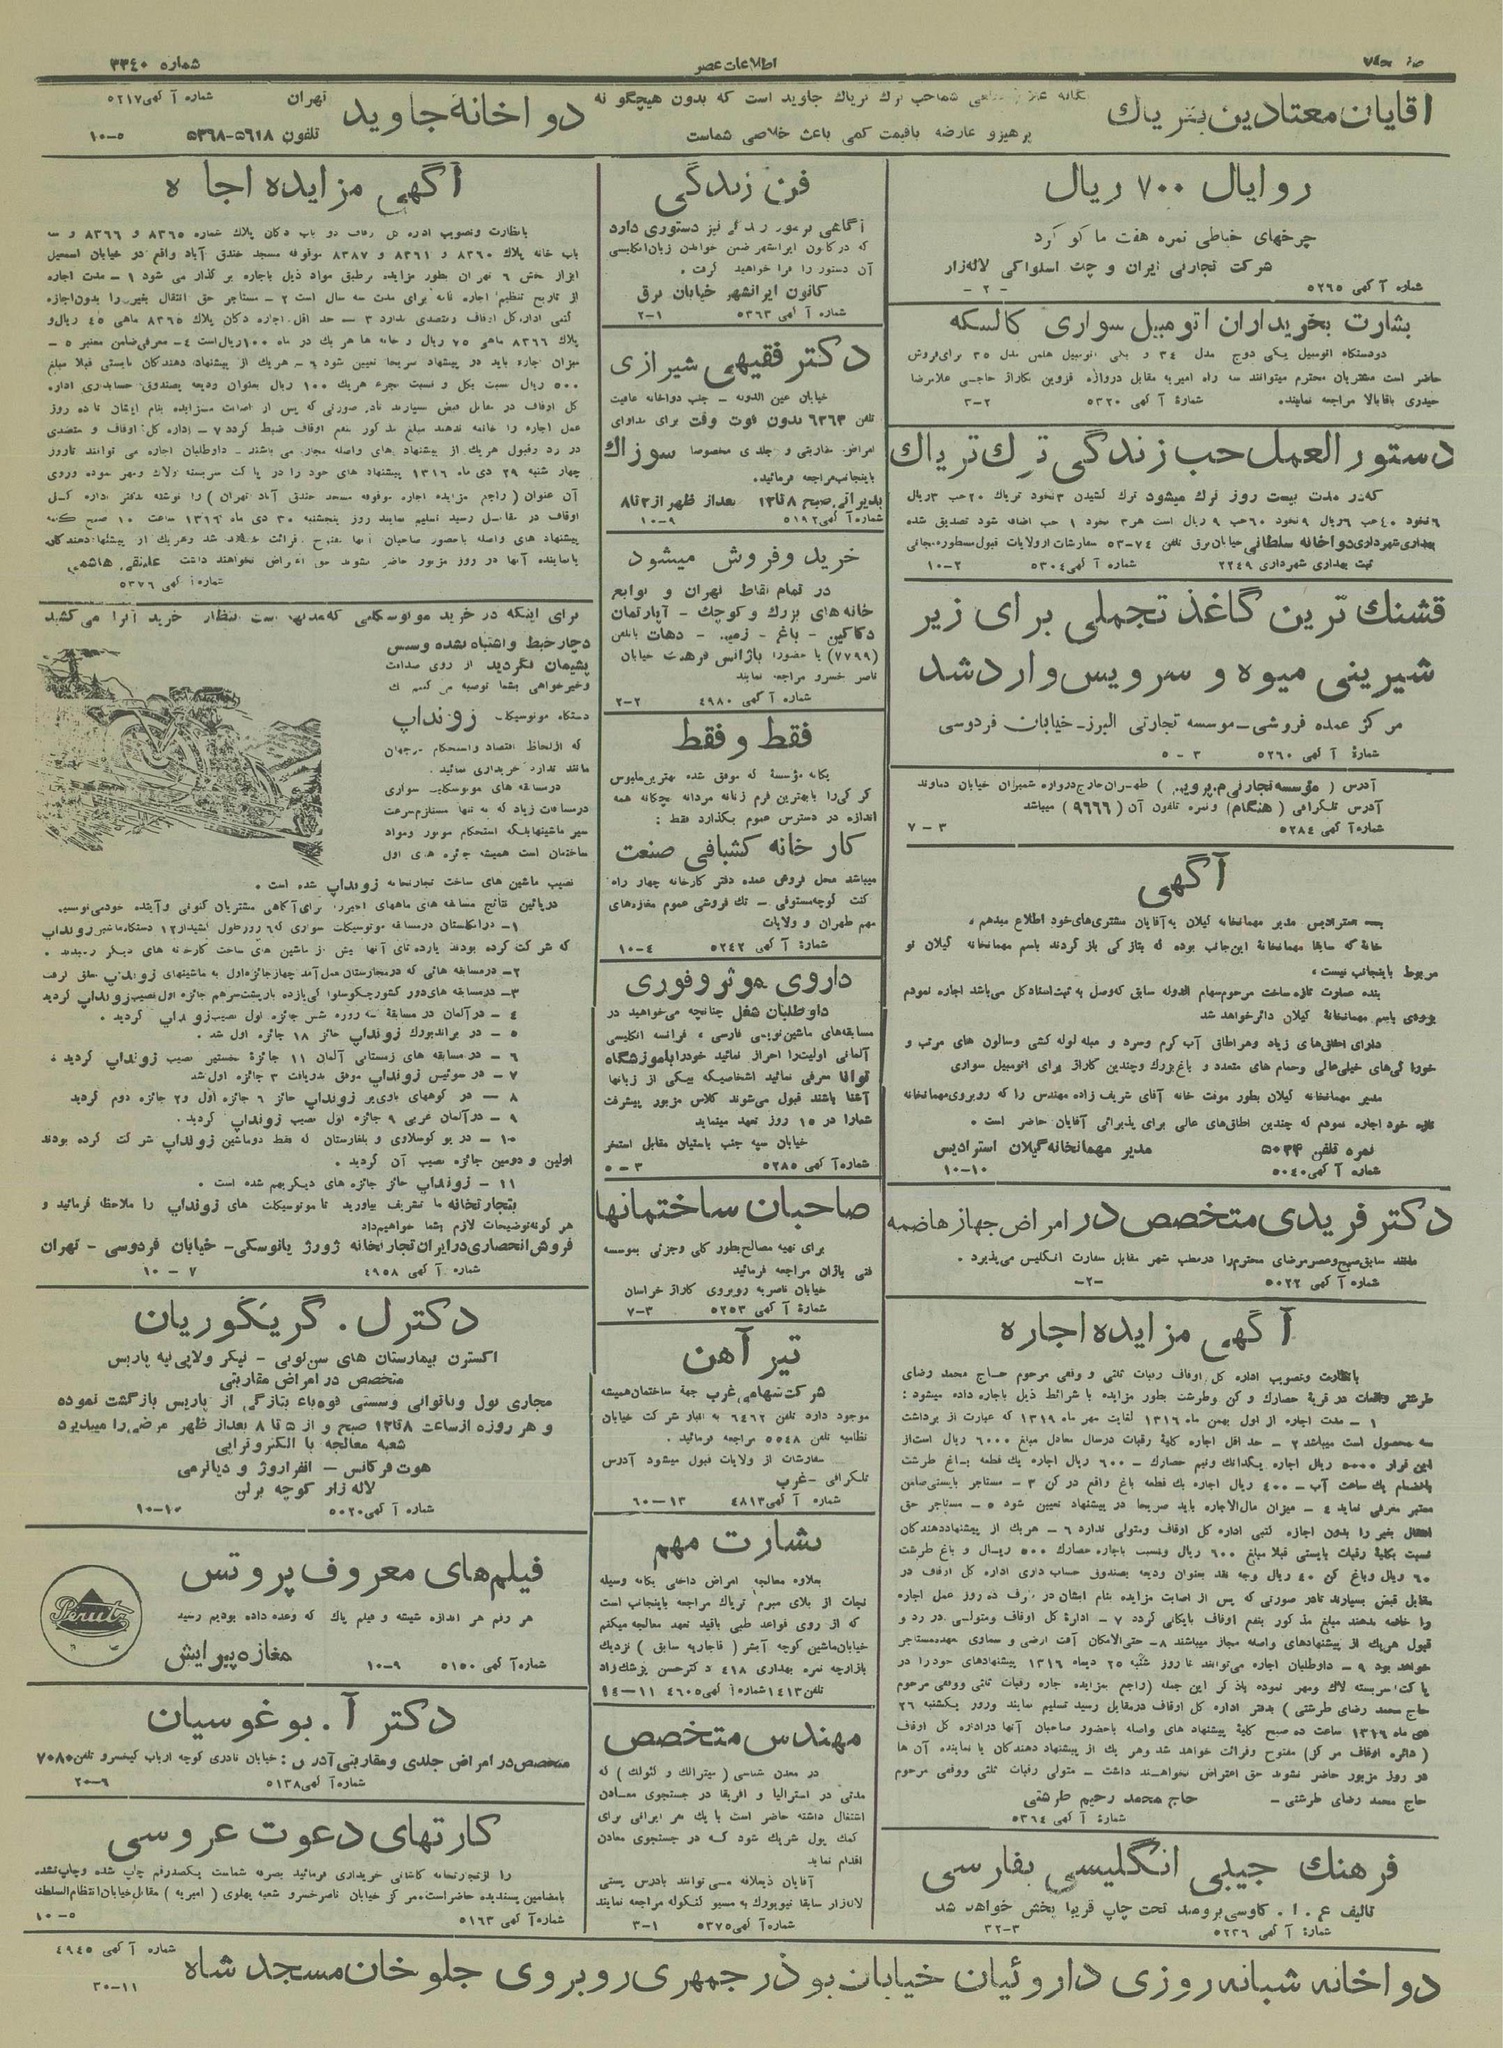 شماره ۳۳۴۰
اطلاعات عصر
آقایان معتادین بتریاک
پرهیز و عارضه باقیمت کمی باعث خلاصی شماست
دواخانه جاوید
تهران
تلفون ۵۶۱۸-۵۳۶۸
شماره آگهی ۵۲۱۷
۱۰-۵
روایال ۷۰۰ ریال
چرخهای خیاطی نمره هفت ما کو کرد
شرکت تجارتی ایران و چک اسلواکی لاله‌زار
شماره آگهی ۵۲۶۵
-۲-
بشارت بخریداران اتومبیل سواری کالسکه
حاضر است مشتریان محترم میتوانند سه راه امیریه مقابل دروازه قزوین بگاراژ حاجی غلامرضا
حیدری باقابالا مراجعه نمایند.
شماره آگهی ۵۳۲۰
۳-۲
دستور العمل حب زندگی ترك تریاك
که در مدت بیست روز ترك میشود ترك کشیدن ۳ نخود تریاك ۲۰ حب ۳ ریال
۶ نخود ۴۰ حب ۶ ریال ۹ نخود ۶۰ حب ۹ ریال است هر ۳ نخود ۱ حب اضافه شود تصدیق شده
بهداری شهرداری دواخانه سلطانی خیابان برق تلفن ۷۴-۵۳ سفارشات از ولایات قبول مسطوره مجانی
ثبت بهداری شهرداری ۲۲۴۹
شماره آگهی ۵۳۰۴
۱۰-۲
قشنك ترین كاغذ تجملی برای زیر
شیرینی میوه و سرویس وارد شد
مرکز عمده فروشی - موسسه تجارتی البرز - خیابان فردوسی
شمارهٔ آگهی ۵۲۶۰
۵-۳
آدرس ( مؤسسه تجارتی م. پرویز ) طهران خارج دروازه شمیران خیابان دماوند
آدرس تلگرافی ( هنگام ) ونمره تلفون آن ( ۹۶۶۶ ) میباشد
شماره آگهی ۵۲۸۴
۷-۳
آگهی
استرادیس مدیر مهمانخانه گیلان به آقایان مشتری‌های خود اطلاع میدهم ،
خانهٔ که سابقا مهمانخانهٔ این‌جانب بوده که بتازگی باز گردند باسم مهمانخانه گیلان نو
مربوط باینجانب نیست ،
بنده عمارت تازه ساخت مرحوم سهام الدوله سابق که وصل به ثبت اسناد کل می‌باشد اجاره نمودم
بزودی باسم مهمانخانهٔ گیلان دائر خواهد شد
دارای اطاق‌های زیاد و هر اطاق آب گرم وسرد و مبله لوله کشی وسالون های مرتب و
خوراکی‌های خیلی عالی وحمام های متعدد و باغ بزرگ وچندین گاراژ برای اتومبیل سواری
مدیر مهمانخانه گیلان بطور موقت خانه آقای شریف زاده مهندس را که روبروی مهمانخانه
تازه خود اجاره نمودم که چندین اطاق‌های عالی برای پذیرائی آقایان حاضر است .
نمره تلفن ۵۰۳۴
مدیر مهمانخانه گیلان استرادیس
شماره آگهی ۵۰۴۰
۱۰-۱۰
دکتر فریدی متخصص در امراض جهاز هاضمه
مانند سابق صبح و عصر مرضای محترم را در مطب شهر مقابل سفارت انگلیس می‌پذیرد .
شماره آگهی ۵۰۲۲
-۲-
آگهی مزایده اجاره
بانظارت وتصویب اداره کل اوقاف رقبات ثلثی و وقفی مرحوم حاج محمد رضای
طرشتی واقعات در قریهٔ حصارك و کن وطرشت بطور مزایده با شرائط ذیل باجاره داده میشود :
۱ - مدت اجاره از اول بهمن ماه ۱۳۱۶ لغایت مهر ماه ۱۳۱۹ که عبارت از برداشت
سه محصول است میباشد ۲ - حد اقل اجاره کلیهٔ رقبات درسال معادل مبلغ ۶۰۰۰ ریال است از
این قرار ۵۰۰۰ ریال اجاره یکدانك ونیم حصارك - ۶۰۰ ریال اجاره یك قطعه باغ طرشت
بانضمام یك ساعت آب - ۴۰۰ ریال اجاره یك قطعه باغ واقع در کن ۳ - مستاجر بایستی ضامن
معتبر معرفی نماید ۴ - میزان مال‌الاجاره باید صریحا در پیشنهاد تعیین شود ۵ - مستاجر حق
انتقال بغیر را بدون اجازه کتبی اداره کل اوقاف ومتولی ندارد ۶ - هریك از پیشنهاد دهندگان
نسبت بکلیهٔ رقبات بایستی قبلا مبلغ ۶۰۰ ریال ونسبت باجاره حصارك ۵۰۰ ریال و باغ طرشت
۶۰ ریال وباغ کن ۴۰ ریال وجه نقد بعنوان ودیعه بصندوق حساب داری اداره کل اوقاف در
مقابل قبض بسپارند تا در صورتی که پس از اصابت مزایده بنام ایشان در ظرف ده روز عمل اجاره
را خاتمه ندهند مبلغ مذکور بنفع اوقاف بایگانی گردد ۷ - ادارهٔ کل اوقاف ومتولی در رد و
قبول هریك از پیشنهادهای واصله مجاز میباشند ۸ - حتی‌الامکان آفت ارضی و سماوی بعهده مستاجر
خواهد بود ۹ - داوطلبان اجاره می‌توانند تا روز شنبه ۲۵ دیماه ۱۳۱۶ پیشنهادهای خود را در
پاکت سربسته لاك ومهر نموده باذکر این جمله (راجع بمزایده اجاره رقبات ثلثی ووقفی مرحوم
حاج محمد رضای طرشتی ) بدفتر اداره کل اوقاف درمقابل رسید تسلیم نمایند وروز یکشنبه ۲۶
دی ماه ۱۳۱۶ ساعت ده صبح کلیهٔ پیشنهاد های واصله باحضور صاحبان آنها در اداره کل اوقاف
( دائره اوقاف مرکز) مفتوح وقرائت خواهد شد وهر یك از پیشنهاد دهندگان یا نماینده آن ها
در روز مزبور حاضر نشوند حق اعتراض نخواهند داشت - متولی رقبات ثلثی ووقفی مرحوم
حاج محمد رضای طرشتی -
حاج محمد رحیم طرشتی
شماره آگهی ۵۳۶۴
فرهنك جیبی انگلیسی بفارسی
تالیف ع . ا . کاوسی برومند تحت چاپ قریبا پخش خواهد شد
شماره آگهی ۵۲۳۶
۳۲-۳
فن زندگی
که در کانون ایرانشهر ضمن خواندن زبان انگلیسی
آن دستور را فرا خواهید گرفت .
کانون ایرانشهر خیابان برق
شماره آگهی ۵۳۶۳
۲-۱
دکتر فقیهی شیرازی
خیابان عین الدوله - جنب دواخانه عافیت
تلفن ۶۳۶۳ بدون فوت وقت برای مداوای
امراض مقاربتی و جلدی مخصوصا سوزاك
باینجانب مراجعه فرمائید.
پذیرائی صبح ۸ تا ۱۲ بعداز ظهر از ۳ تا ۸
شماره آگهی ۵۱۹۲
۱۰-۹
خرید وفروش میشود
در تمام نقاط تهران و توابع
خانه های بزرك و کوچك - آپارتمان
دکاکین - باغ - زمین - دهات باتلفن
(۷۷۹۹) یا حضورا باژانس فرهت خیابان
ناصر خسرو مراجعه نمایند
شماره آگهی ۴۹۸۰
۲-۲
فقط و فقط
یگانه مؤسسهٔ که موفق شده بهترین ملبوس
کرکی را بابهترین فرم زنانه مردانه بچگانه همه
اندازه در دسترس عموم بگذارد فقط :
کارخانه کشبافی صنعت
میباشد محل فروش عمده دفتر کارخانه چهار راه
کنت کوچه مستوفی - تك فروشی عموم مغازه‌های
مهم طهران و ولایات
شمارهٔ آگهی ۵۲۴۲
۱۰-۴
داروی موثر وفوری
داوطلبان شغل چنانچه می‌خواهید در
مسابقه‌های ماشین نویسی فارسی ، فرانسه انگلیسی
آلمانی اولیت را احراز نمائید خودرا بآموزشگاه
توانا معرفی نمائید اشخاصیکه بیکی از زبانها
آشنا باشند قبول می‌شوند کلاس مزبور پیشرفت
شمارا در ۱۵ روز تعهد مینماید
خیابان سپه جنب باستیان مقابل استخر
شماره آگهی ۵۲۸۵
۵-۳
صاحبان ساختمانها
برای تهیه مصالح بطور کلی وجزئی بموسسه
فنی پاژان مراجعه فرمائید
خیابان ناصریه روبروی گاراژ خراسان
شمارهٔ آگهی ۵۲۵۳
۷-۳
تیر آهن
شرکت سهامی غرب جهة ساختمان همیشه
موجود دارد تلفن ۶۴۶۲ به انبار شرکت خیابان
نظامیه تلفن ۵۵۴۸ مراجعه فرمائید .
سفارشات از ولایات قبول میشود آدرس
تلگرافی - غرب
شماره آگهی ۴۸۱۳
۶۰-۱۳
بشارت مهم
بعلاوه معالجه امراض داخلی یگانه وسیله
نجات از بلای مبرم تریاك مراجعه باینجانب است
که از روی قواعد طبی باقید تعهد معالجه میکنم
خیابان ماشین کوچه آبشر ( قاجاریه سابق ) نزدیك
بازارچه نمره بهداری ۴۱۸ دکتر حسن پزشك‌زاد
تلفن ۱۴۱۳ شماره آگهی ۴۶۰۵
مهندس متخصص
در معدن شناسی ( میترالك و لئولك ) که
مدتی در استرالیا و افریقا در جستجوی معادن
اشتغال داشته حاضر است با یك هر ایرانی برای
کمك پول شریك شود که در جستجوی معادن
اقدام نماید
آقایان ذیعلاقه می توانند بآدرس پستی
لاله‌زار سابقا نیویورك به مسیو لنگوله مراجعه نمایند
شماره آگهی ۵۳۷۵
۳-۱
آگهی مزایده اجا ه
باب خانه پلاك ۸۳۶۰ و ۸۳۶۱ و ۸۳۸۷ موقوفه مسجد خندق آباد واقع در خیابان اسمعیل
بزاز بخش ۶ تهران بطور مزایده برطبق مواد ذیل باجاره برگذار می شود ۱ - مدت اجاره
از تاریخ تنظیم اجاره نامه برای مدت سه سال است ۲ - مستاجر حق انتقال بغیر را بدون اجازه
کتبی اداره کل اوقاف ومتصدی ندارد ۳ - حد اقل اجاره دکان پلاك ۸۳۶۵ ماهی ۴۵ ریال و
۸۳۶۶ ماهی ۷۵ ریال و خانه ها هریك در ماه ۱۰۰ ریال است ۴ - معرفی ضامن معتبر ۵ -
میزان اجاره باید در پیشنهاد صریحا تعیین شود ۶ - هریك از پیشنهاد دهندگان بایستی قبلا مبلغ
۵۰۰ ریال نسبت بکل و نسبت بجزء هریك ۱۰۰ ریال بعنوان ودیعه بصندوق حسابداری اداره
کل اوقاف در مقابل قبض بسپارند تا در صورتی که پس از اصابت مزایده بنام ایشان تا ده روز
عمل اجاره را خاتمه ندهند مبلغ مذکور بنفع اوقاف ضبط گردد ۷ - اداره کل اوقاف و متصدی
در رد وقبول هریك از پیشنهاد های واصله مجاز می باشند - داوطلبان اجاره می توانند تا روز
چهار شنبه ۲۹ دی ماه ۱۳۱۶ پیشنهاد های خود را در پاکت سربسته ولاك ومهر نموده وروی
آن عنوان ( راجع بمزایده اجاره موقوفه مسجد خندق آباد تهران ) را نوشته بدفتر اداره کل
اوقاف در مقابل رسید تسلیم نمایند روز پنجشنبه ۳۰ دی ماه ۱۳۱۶ ساعت ۱۰ صبح کلیه
شماره آگهی ۵۳۷۶
برای اینکه در خرید موتوسیکلتی که مدتها است انتظار خرید آنرا می‌کشید
دچار خبط و اشتباه نشده وسپس
پشیمان نگردید از روی صداقت
وخیرخواهی بشما توصیه می کنیم ك
دستگاه موتوسیکلت زونداپ
که از لحاظ اقتصاد واستحکام درجهان
مانند ندارد خریداری نمائید .
درمسابقه های موتوسیکلت سواری
درمسافات زیاد که نه تنها مستلزم سرعت
سیر ماشینها بلکه استحکام موتور ومواد
ساختمان است همیشه جائزه های اول
نصیب ماشین های ساخت تجارتخانه زونداپ شده است .
درپائین نتائج مسابقه های ماههای اخیر را برای آگاهی مشتریان کنونی وآینده خود می‌نویسیم
۱- در انگلستان درمسابقه موتوسیکلت سواری که ۶ روز طول کشید از ۱۲ دستگاه ماشین زونداپ
که شرکت کرده بودند یازده تای آنها پیش از ماشین های ساخت کارخانه های دیگر رسیدند .
۲- درمسابقه هائی که درمجارستان بعمل آمد چهار جائزه اول به ماشینهای زونداپ تعلق گرفت
۳- درمسابقه های دور کشور چکوسلواکی یازده باریست سرهم جائزه اول نصیب زونداپ گردید
۴ - در آلمان در مسابقهٔ سه روزه شش جائزه اول نصیب زونداپ گردید .
۵ - در براندبورك زونداپ حائز ۱۸ جائزه اول شد .
۶ - در مسابقه های زمستانی آلمان ۱۱ جائزهٔ نخستین نصیب زونداپ گردید ،
۷ - در سوئیس زونداپ موفق بدریافت ۳ جائزه اول شد
۸ - در کوههای باویر زونداپ حائز ۶ جائزه اول و ۲ جائزه دوم گردید
۹ - در آلمان غربی ۹ جائزه اول نصیب زونداپ گردید .
۱۰ - در یوگوسلاوی و بلغارستان که فقط دو ماشین زونداپ شرکت کرده بودند
اولین و دومین جائزه نصیب آن گردید .
۱۱ - زونداپ حائز جائزه های دیگر بهم شده است .
بتجارتخانه ما تشریف بیاورید تا موتوسیکلت های زونداپ را ملاحظه فرمائید و
هرگونه توضیحات لازم بشما خواهیم داد
فروش انحصاری در ایران تجارتخانه ژورژ یانوسکی - خیابان فردوسی - تهران
شماره آگهی ۴۹۵۸
۱۰-۷
دکتر ل . گریگوریان
اکسترن بیمارستان های سن لوئی - نیکر ولاپی تیه پاریس
متخصص در امراض مقاربتی
مجاری بول وناتوانی وسستی قوه باء بتازگی از پاریس بازگشت نموده
و هر روزه از ساعت ۸ تا ۱۲ صبح و از ۵ تا ۸ بعداز ظهر مرضی را میپذیرد
شعبه معالجه با الکتروترابی
هوت فرکانس - انفراروژ و دیاترمی
لاله زار کوچه برلن
شماره آگهی ۵۰۲۰
۱۰-۱۰
فیلم‌های معروف پروتس
هر رقم هر اندازه شیشه و فیلم پاك که وعده داده بودیم رسید
مغازه پیرایش
شماره آگهی ۵۱۵۰
۱۰-۹
Perutz
دکتر آ . بوغوسیان
متخصص در امراض جلدی ومقاربتی آدرس : خیابان نادری کوچه ارباب کیخسرو تلفن ۷۰۸۰
شماره آگهی ۵۱۳۸
۲۰-۶
کارتهای دعوت عروسی
را از تجارتخانه کاشانی خریداری فرمائید بصرفه شماست یکصد رقم چاپ شده وچاپ نشده
بامضامین پسندیده حاضر است . مرکز خیابان ناصر خسرو شعبه پهلوی ( امیریه ) مقابل خیابان انتظام السلطنه
شماره آگهی ۵۱۶۳
۱۰-۵
دواخانه شبانه روزی داروئیان خیابان بوذرجمهری روبروی جلوخان مسجد شاه
شماره آگهی ۴۹۴۵
۳۰-۱۱